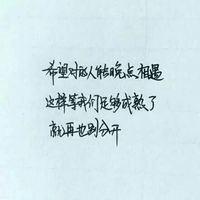 希望对的人能晚点相遇
这样等我们足够成熟了
就再也别分开